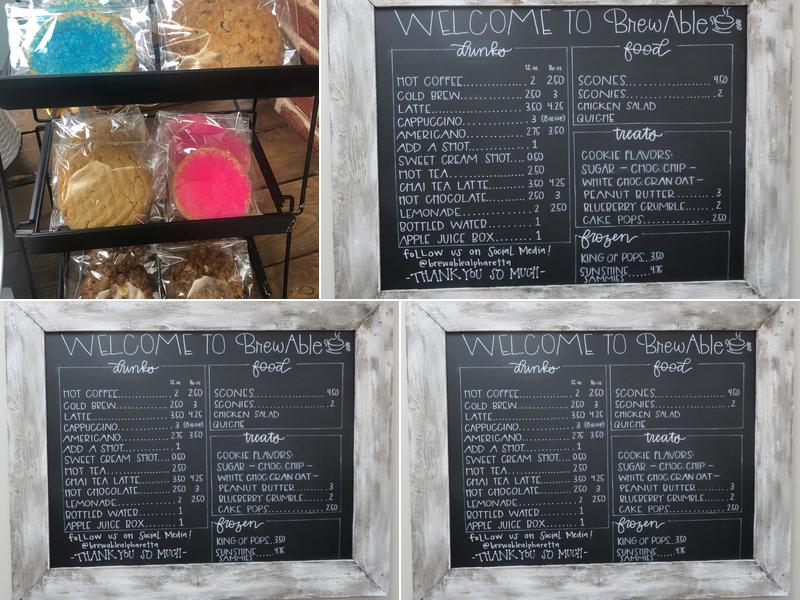 WELCOME TO BrewAble
drinks
12 oz 16 oz
HOT COFFEE 2 2.50
COLD BREW 2.50 3
LATTE 3.50 4.25
CAPPUCCINO 3 (8oz only)
AMERICANO 2.75 3.50
ADD A SHOT 1
SWEET CREAM SHOT 0.50
HOT TEA 2.50
CHAI TEA LATTE 3.50 4.25
HOT CHOCOLATE 2.50 3
LEMONADE 2 2.50
BOTTLED WATER 1
APPLE JUICE BOX 1
follow us on Social Media!
@brewablealpharetta
-THANK YOU SO MUCH-
food
SCONES 4.50
SCONIES 2
CHICKEN SALAD
QUICHE
treats
COOKIE FLAVORS:
SUGAR - CHOC. CHIP -
WHITE CHOC. CRAN OAT -
PEANUT BUTTER 3
BLUEBERRY CRUMBLE 2
CAKE POPS 2.50
frozen
KING OF POPS 3.50
SUNSHINE SAMMIES 4.75
WELCOME TO BrewAble
drinks
12 oz 16 oz
HOT COFFEE 2 2.50
COLD BREW 2.50 3
LATTE 3.50 4.25
CAPPUCCINO 3 (8oz only)
AMERICANO 2.75 3.50
ADD A SHOT 1
SWEET CREAM SHOT 0.50
HOT TEA 2.50
CHAI TEA LATTE 3.50 4.25
HOT CHOCOLATE 2.50 3
LEMONADE 2 2.50
BOTTLED WATER 1
APPLE JUICE BOX 1
follow us on Social Media!
@brewablealpharetta
-THANK YOU SO MUCH-
food
SCONES 4.50
SCONIES 2
CHICKEN SALAD
QUICHE
treats
COOKIE FLAVORS:
SUGAR - CHOC. CHIP -
WHITE CHOC. CRAN OAT -
PEANUT BUTTER 3
BLUEBERRY CRUMBLE 2
CAKE POPS 2.50
frozen
KING OF POPS 3.50
SUNSHINE SAMMIES 4.75
WELCOME TO BrewAble
drinks
12 oz 16 oz
HOT COFFEE 2 2.50
COLD BREW 2.50 3
LATTE 3.50 4.25
CAPPUCCINO 3 (8oz only)
AMERICANO 2.75 3.50
ADD A SHOT 1
SWEET CREAM SHOT 0.50
HOT TEA 2.50
CHAI TEA LATTE 3.50 4.25
HOT CHOCOLATE 2.50 3
LEMONADE 2 2.50
BOTTLED WATER 1
APPLE JUICE BOX 1
follow us on Social Media!
@brewablealpharetta
-THANK YOU SO MUCH-
food
SCONES 4.50
SCONIES 2
CHICKEN SALAD
QUICHE
treats
COOKIE FLAVORS:
SUGAR - CHOC. CHIP -
WHITE CHOC. CRAN OAT -
PEANUT BUTTER 3
BLUEBERRY CRUMBLE 2
CAKE POPS 2.50
frozen
KING OF POPS 3.50
SUNSHINE SAMMIES 4.75